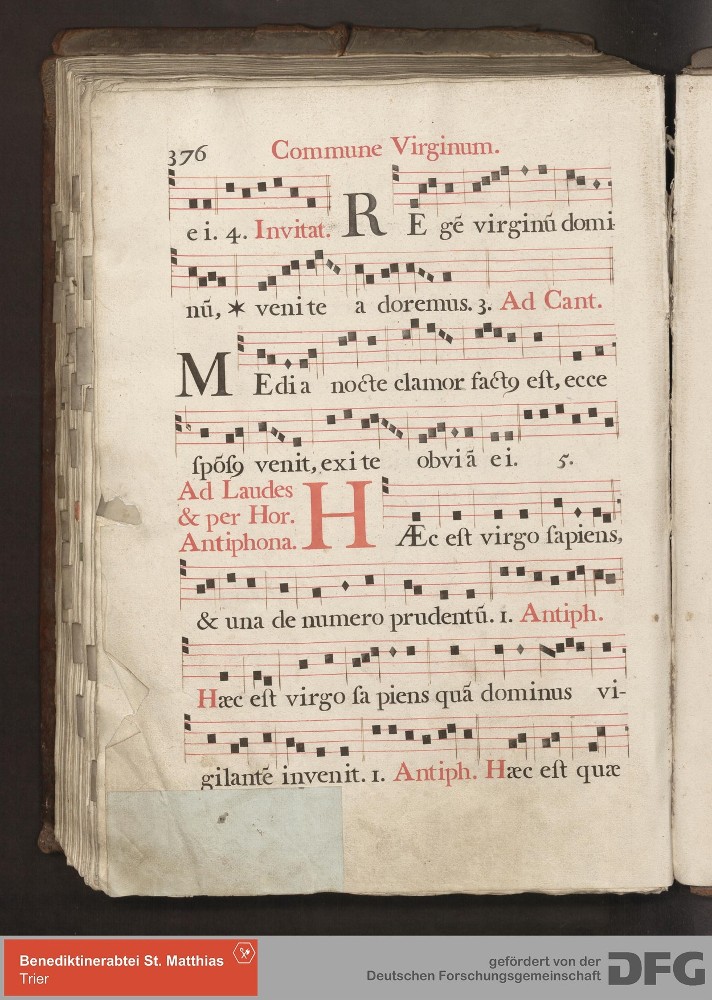 376 Commune Virginum.
e i. 4. Invitat. R E gē virginū domi-
nū, ✶ venite a doremus. 3. Ad Cant.
M Edi a nocte clamor factꝯ est, ecce
ſpōſꝯ venit, exi te obvi ā e i. 5.
Ad Laudes
& per Hor.
Antiphona. H Æc eſt virgo ſapiens,
& una de numero prudentū. 1. Antiph.
Hæc eſt virgo ſa piens quā dominus vi-
gilantē invenit. 1. Antiph. Hæc eſt quæ
Benediktinerabtei St. Matthias
Trier
gefördert von der
Deutschen Forschungsgemeinschaft DFG